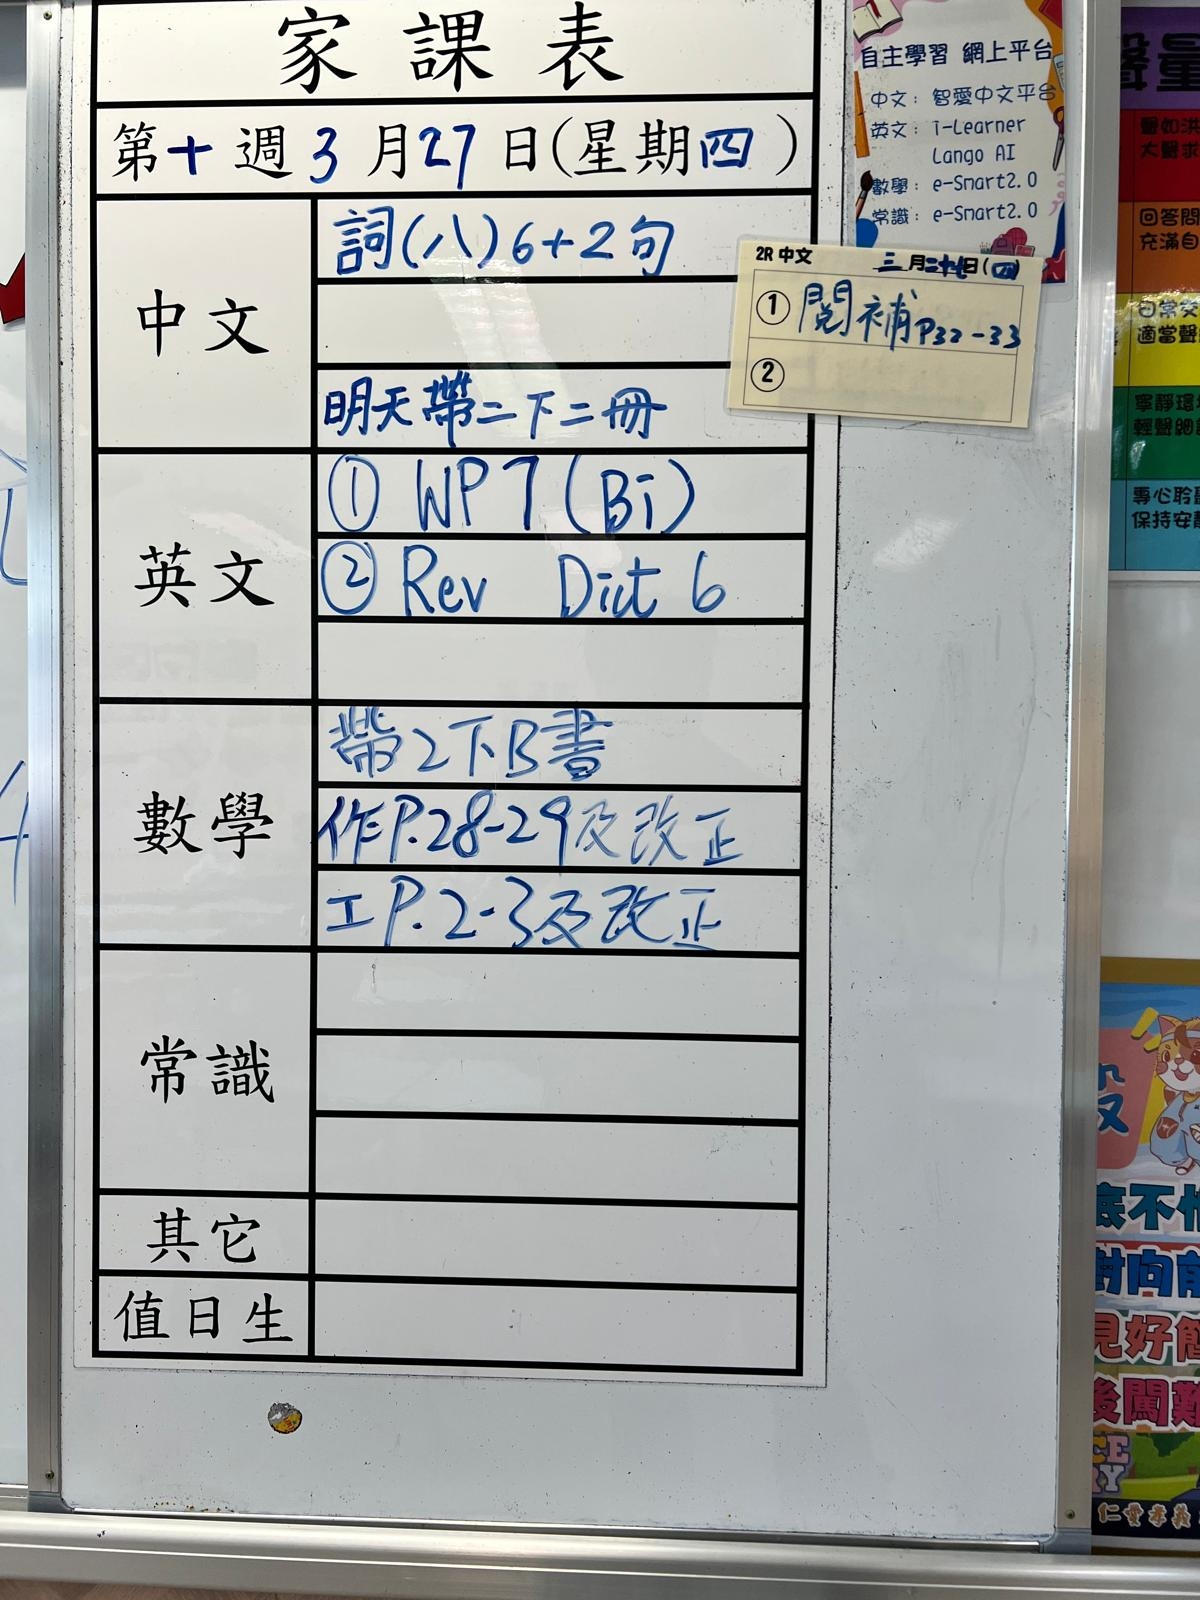 家課表
第十週3月27日(星期四)
中文
詞(八)6+2句
明天帶二下二冊
英文
① WP7(Bi)
② Rev Dict 6
數學
帶2下B書
作P.28-29及改正
工P.2-3及改正
常識
其它
值日生
自主學習 網上平台
中文：智愛中文平台
英文：i-Learner
Lango AI
數學：e-Smart2.0
常識：e-Smart2.0
2R 中文 三月二十七日(四)
① 閱補P32-33
②
聲量
聲如洪
大聲求
回答問
充滿自
日常交
適當聲
寧靜環
輕聲細
專心聆
保持安靜
底不怕
對向前
見好簡
後闖難